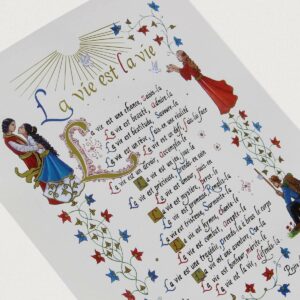 La vie est la vie
La vie est une chance, saisis-la
La vie est beauté, admire-la
La vie est béatitude, savoure-la
La vie est un rêve, fais en une réalité
La vie est un défi, fais lui face
La vie est un devoir, accomplis-le
La vie est un jeu, joue-le
La vie est précieuse, prends en soin
La vie est
La vie est
La vie est mystère, perce-le
La vie est promesse, remplis-la
La vie est tristesse, surmonte-la
La vie est un hymne, chante-le
La vie est un combat, accepte-le
La vie est une tragédie, prends-la à bras le corps
La vie est une aventure, ose-la
La vie est bonheur, mérite-le
La vie est la vie, défends-la